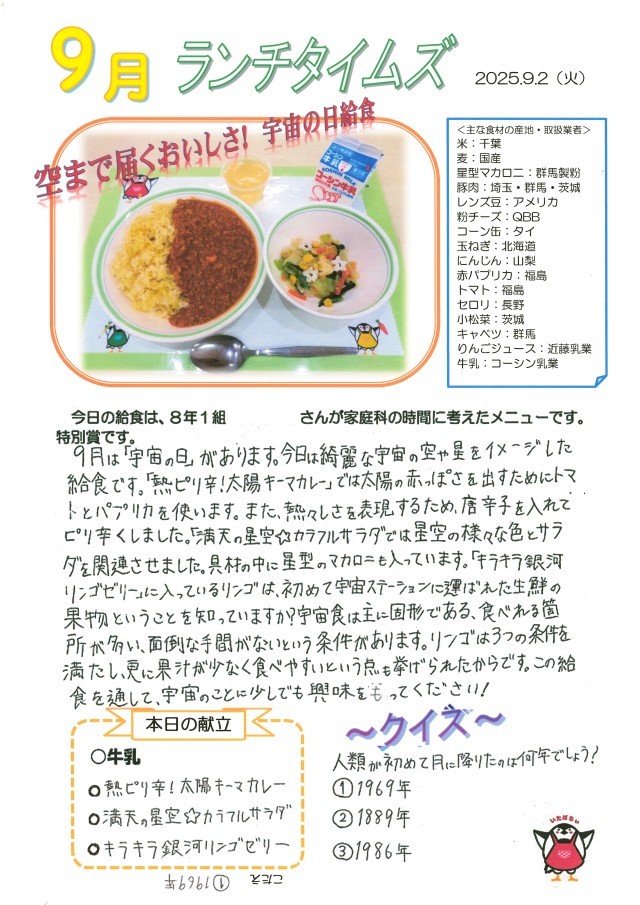 9月 ランチタイムズ
2025.9.2（火）
空まで届くおいしさ！宇宙の日給食
コーシン牛乳
KOSHIN MILK
コーシン牛乳
＜主な食材の産地・取扱業者＞
米：千葉
麦：国産
星型マカロニ：群馬製粉
豚肉：埼玉・群馬・茨城
レンズ豆：アメリカ
粉チーズ：QBB
コーン缶：タイ
玉ねぎ：北海道
にんじん：山梨
赤パプリカ：福島
トマト：福島
セロリ：長野
小松菜：茨城
キャベツ：群馬
りんごジュース：近藤乳業
牛乳：コーシン乳業
今日の給食は、８年１組　　　　　さんが家庭科の時間に考えたメニューです。
特別賞です。
９月は「宇宙の日」があります。今日は綺麗な宇宙の空や星をイメージした
給食です。「熱ピリ辛！太陽キーマカレー」では太陽の赤っぽさを出すためにトマ
トとパプリカを使います。また、熱々しさを表現するため、唐辛子を入れて
ピリ辛くしました。「満天の星空☆カラフルサラダ」では星空の様々な色とサラ
ダを関連させました。具材の中に星型のマカロニも入っています。「キラキラ銀河
リンゴゼリー」に入っているリンゴは、初めて宇宙ステーションに運ばれた生鮮の
果物ということを知っていますか？宇宙食は主に固形である、食べれる箇
所が多い、面倒な手間がないという条件があります。リンゴは３つの条件を
満たし、更に果汁が少なく食べやすいという点も挙げられたからです。この給
食を通して、宇宙のことに少しでも興味をもってください！
本日の献立
○牛乳
○熱ピリ辛！太陽キーマカレー
○満天の星空☆カラフルサラダ
○キラキラ銀河リンゴゼリー
～クイズ～
人類が初めて月に降りたのは何年でしょう？
①1969年
②1889年
③1986年
いたばちぃ
こたえ ①1969年